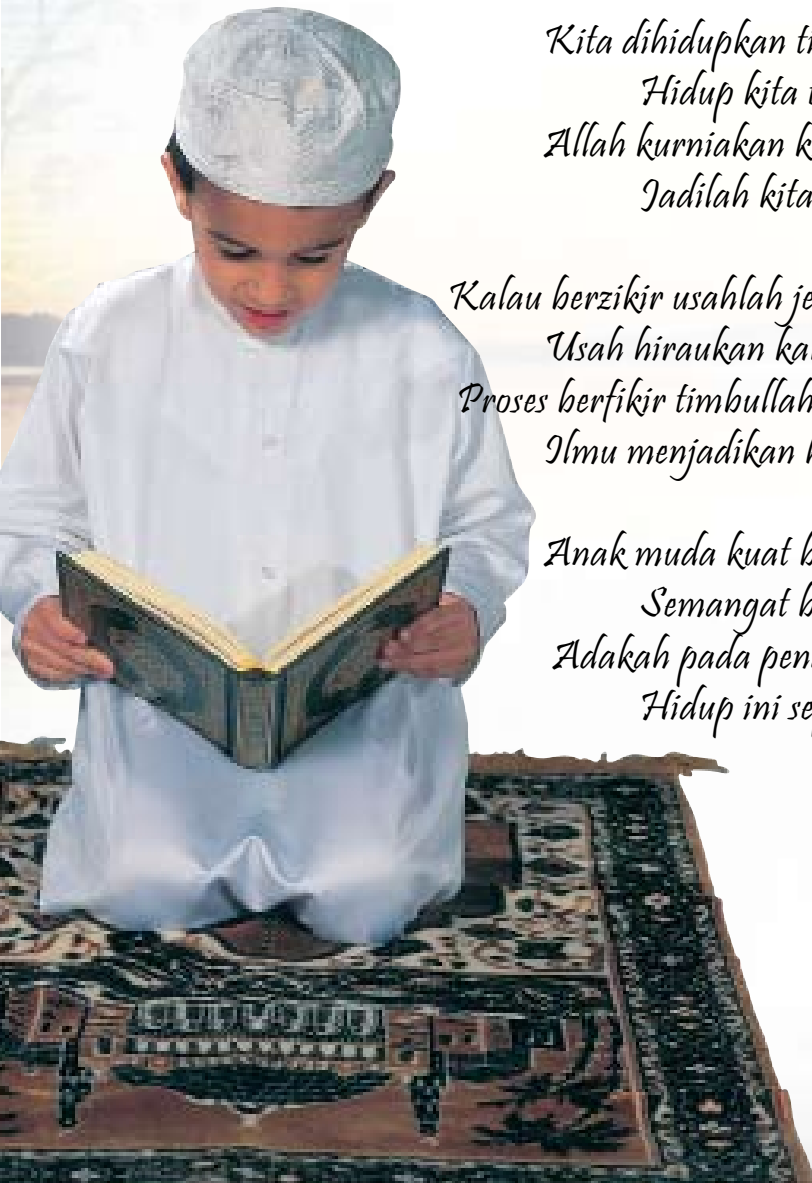 Kita dihidupkan
Hidup kita
Allah kurniakan
Jadilah kita
Kalau berzikir usahlah
Usah hiraukan
Proses berfikir timbullah
Ilmu menjadikan
Anak muda kuat
Semangat
Adakah pada
Hidup ini